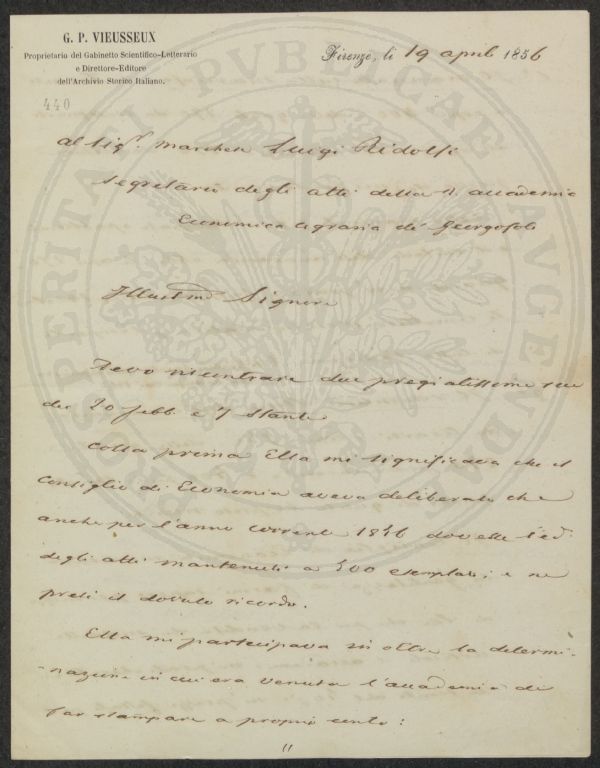 G. P. VIEUSSEUX
Proprietario del Gabinetto Scientifico-Letterario
e Direttore-Editore
dell'Archivio Storico Italiano.
440
Firenze, li 19 aprile 1856
al Sigr. Marchese Luigi Ridolfi
Segretario degli atti della R. accademia
Economica agraria dei Georgofili
Illustmo Signore
Devo riscontrare due pregiatissime sue
dei 20 febb. e 7 stante
colla prima Ella mi significava che il
Consiglio di Economia aveva deliberato che
anche per l'anno corrente 1856 dovesse l'ed.
degli atti mantenersi a 500 esemplari; e ne
presi il dovuto ricordo.
Ella mi partecipava in oltre la determi-
-nazione in cui era venuta l'accademia di
far stampare a proprio conto:
PROSPERITATI PVBLICAE AVGENDAE